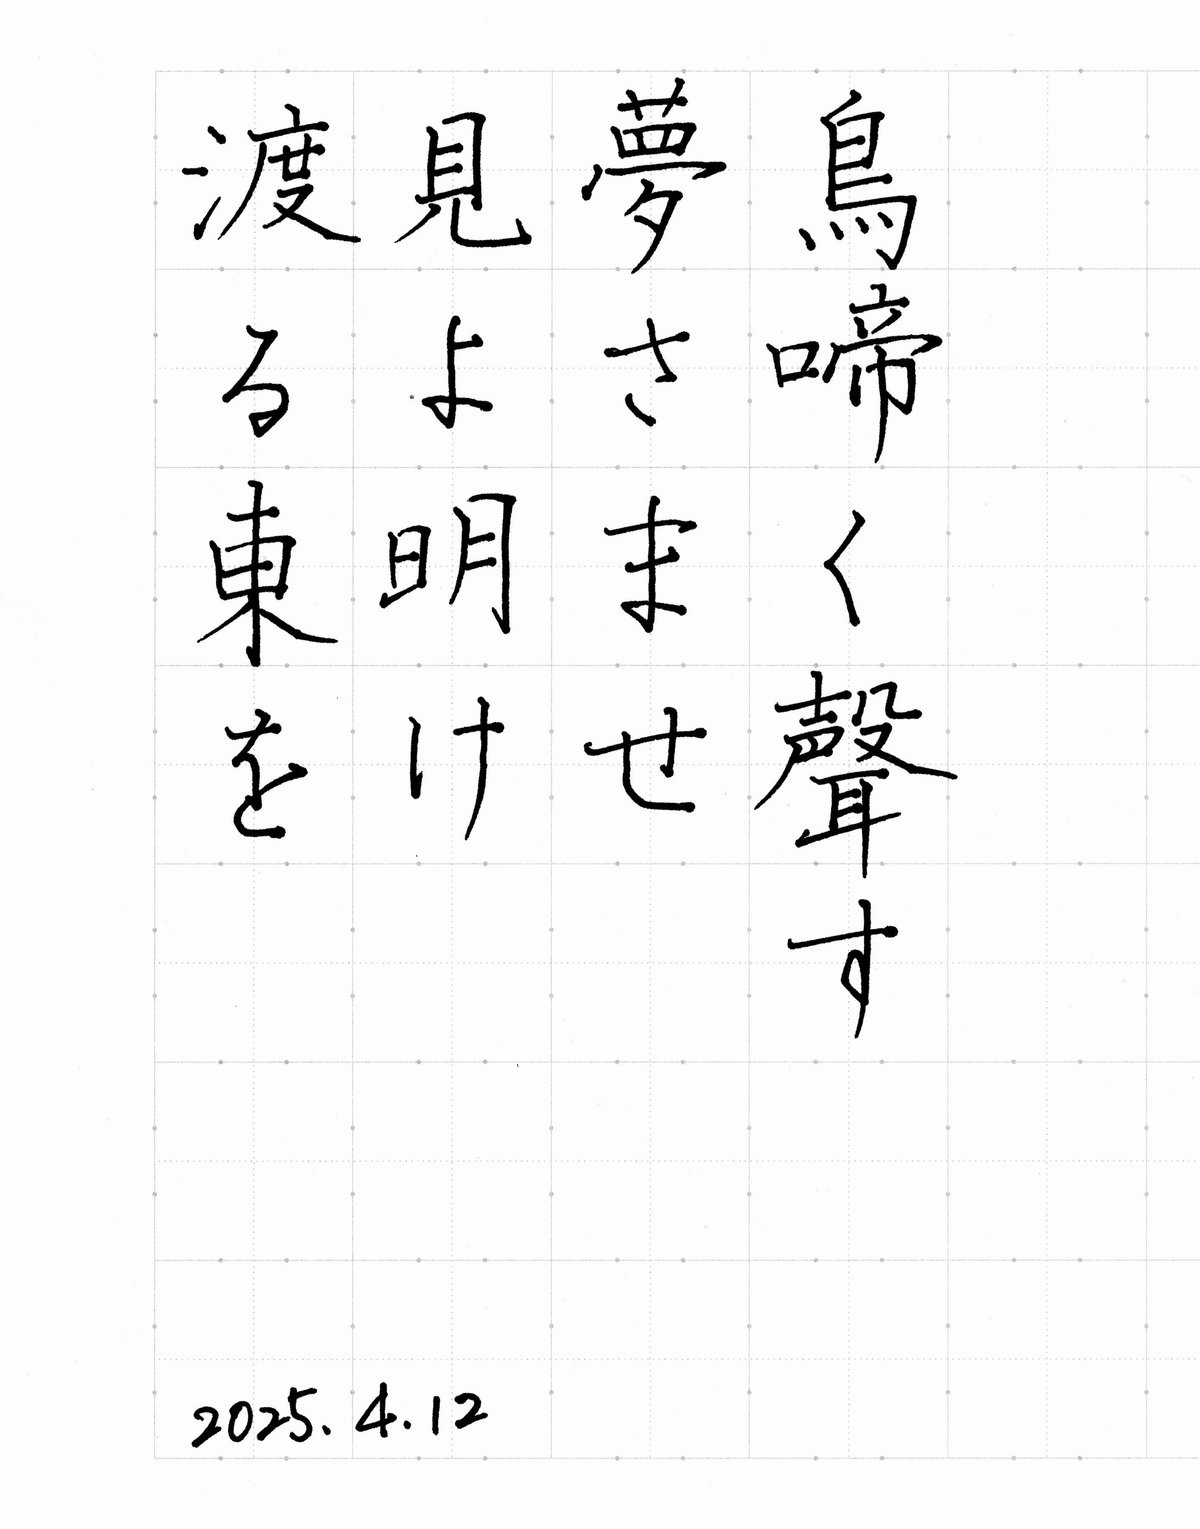 鳥啼く聲す
夢さませ
見よ明け
渡る東を
2025.4.12